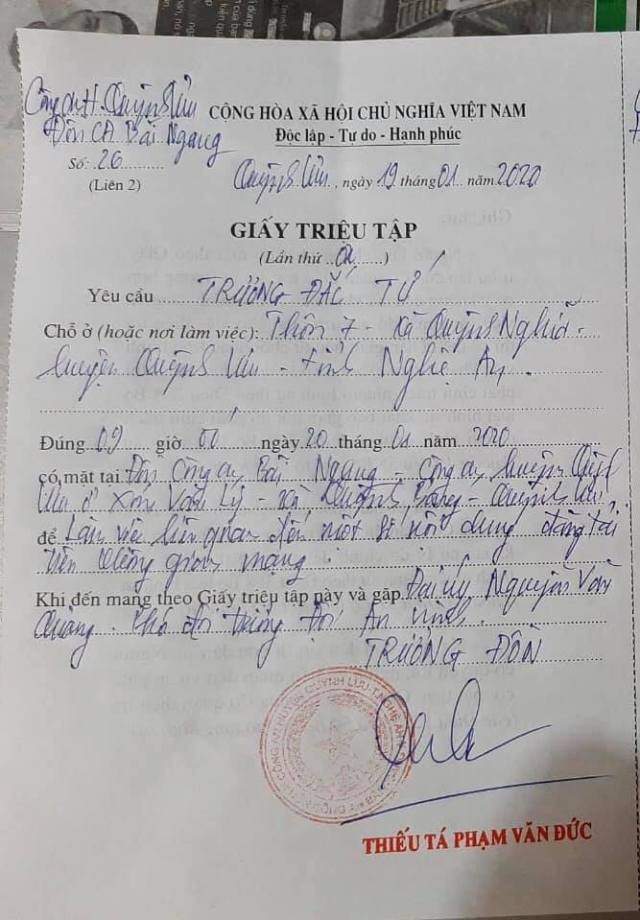 Công an H. Quỳnh Lưu
Đồn CA Bãi Ngang
Số: 26
(Liên 2)
CỘNG HÒA XÃ HỘI CHỦ NGHĨA VIỆT NAM
Độc lập - Tự do - Hạnh phúc
Quỳnh Lưu, ngày 19 tháng 01 năm 2020
GIẤY TRIỆU TẬP
(Lần thứ 01)
Yêu cầu TRƯƠNG ĐẮC TỨ
Chỗ ở (hoặc nơi làm việc): Thôn 7 - Xã Quỳnh Nghĩa -
huyện Quỳnh Lưu - tỉnh Nghệ An.
Đúng 09 giờ ngày 20 tháng 01 năm 2020
có mặt tại Đồn Công an Bãi Ngang - Công an huyện Quỳnh
Lưu ở Xóm Văn Lý - Xã Quỳnh Bảng - Quỳnh Lưu
để Làm việc liên quan đến một số nội dung đăng tải
trên không gian mạng.
Khi đến mang theo Giấy triệu tập này và gặp Đại úy Nguyễn Văn
Quang - Phó đội trưởng Đội An ninh.
TRƯỞNG ĐỒN
THIẾU TÁ PHẠM VĂN ĐỨC